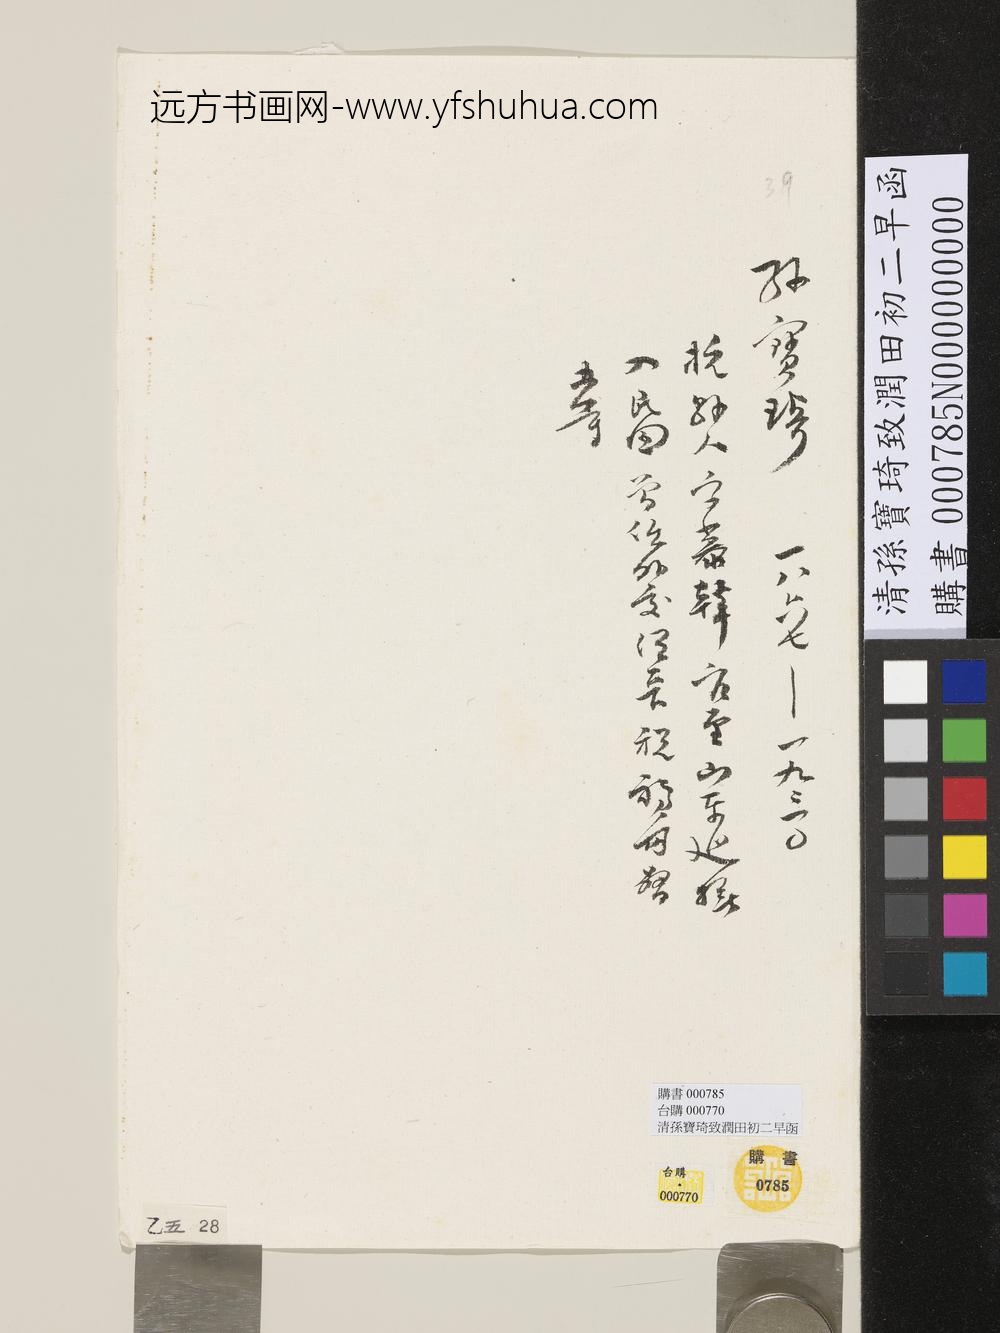 远方书画网-www.yfshuhua.com
39
孫寶琦 一八六七—一九三一〇
杭縣人 字慕韓 官至山東巡撫
入民國 曾任外交總長 稅務督辦
等
清孫寶琦致潤田初二早函
購書 000785N000000000
購書 000785
台購 000770
清孫寶琦致潤田初二早函
購 書
0785
台購
000770
乙五 28